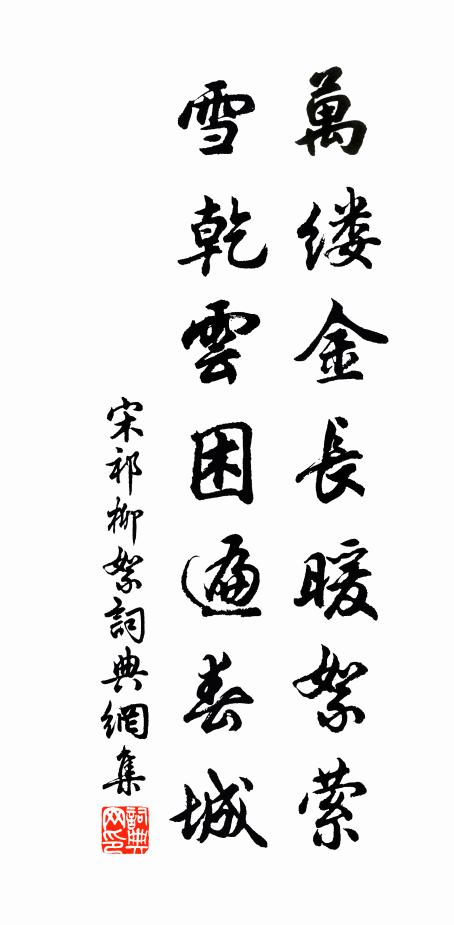 萬缕金長暖絮萦
雪乾雲困遍春城
宋祁柳絮詞典網集
詞典网印